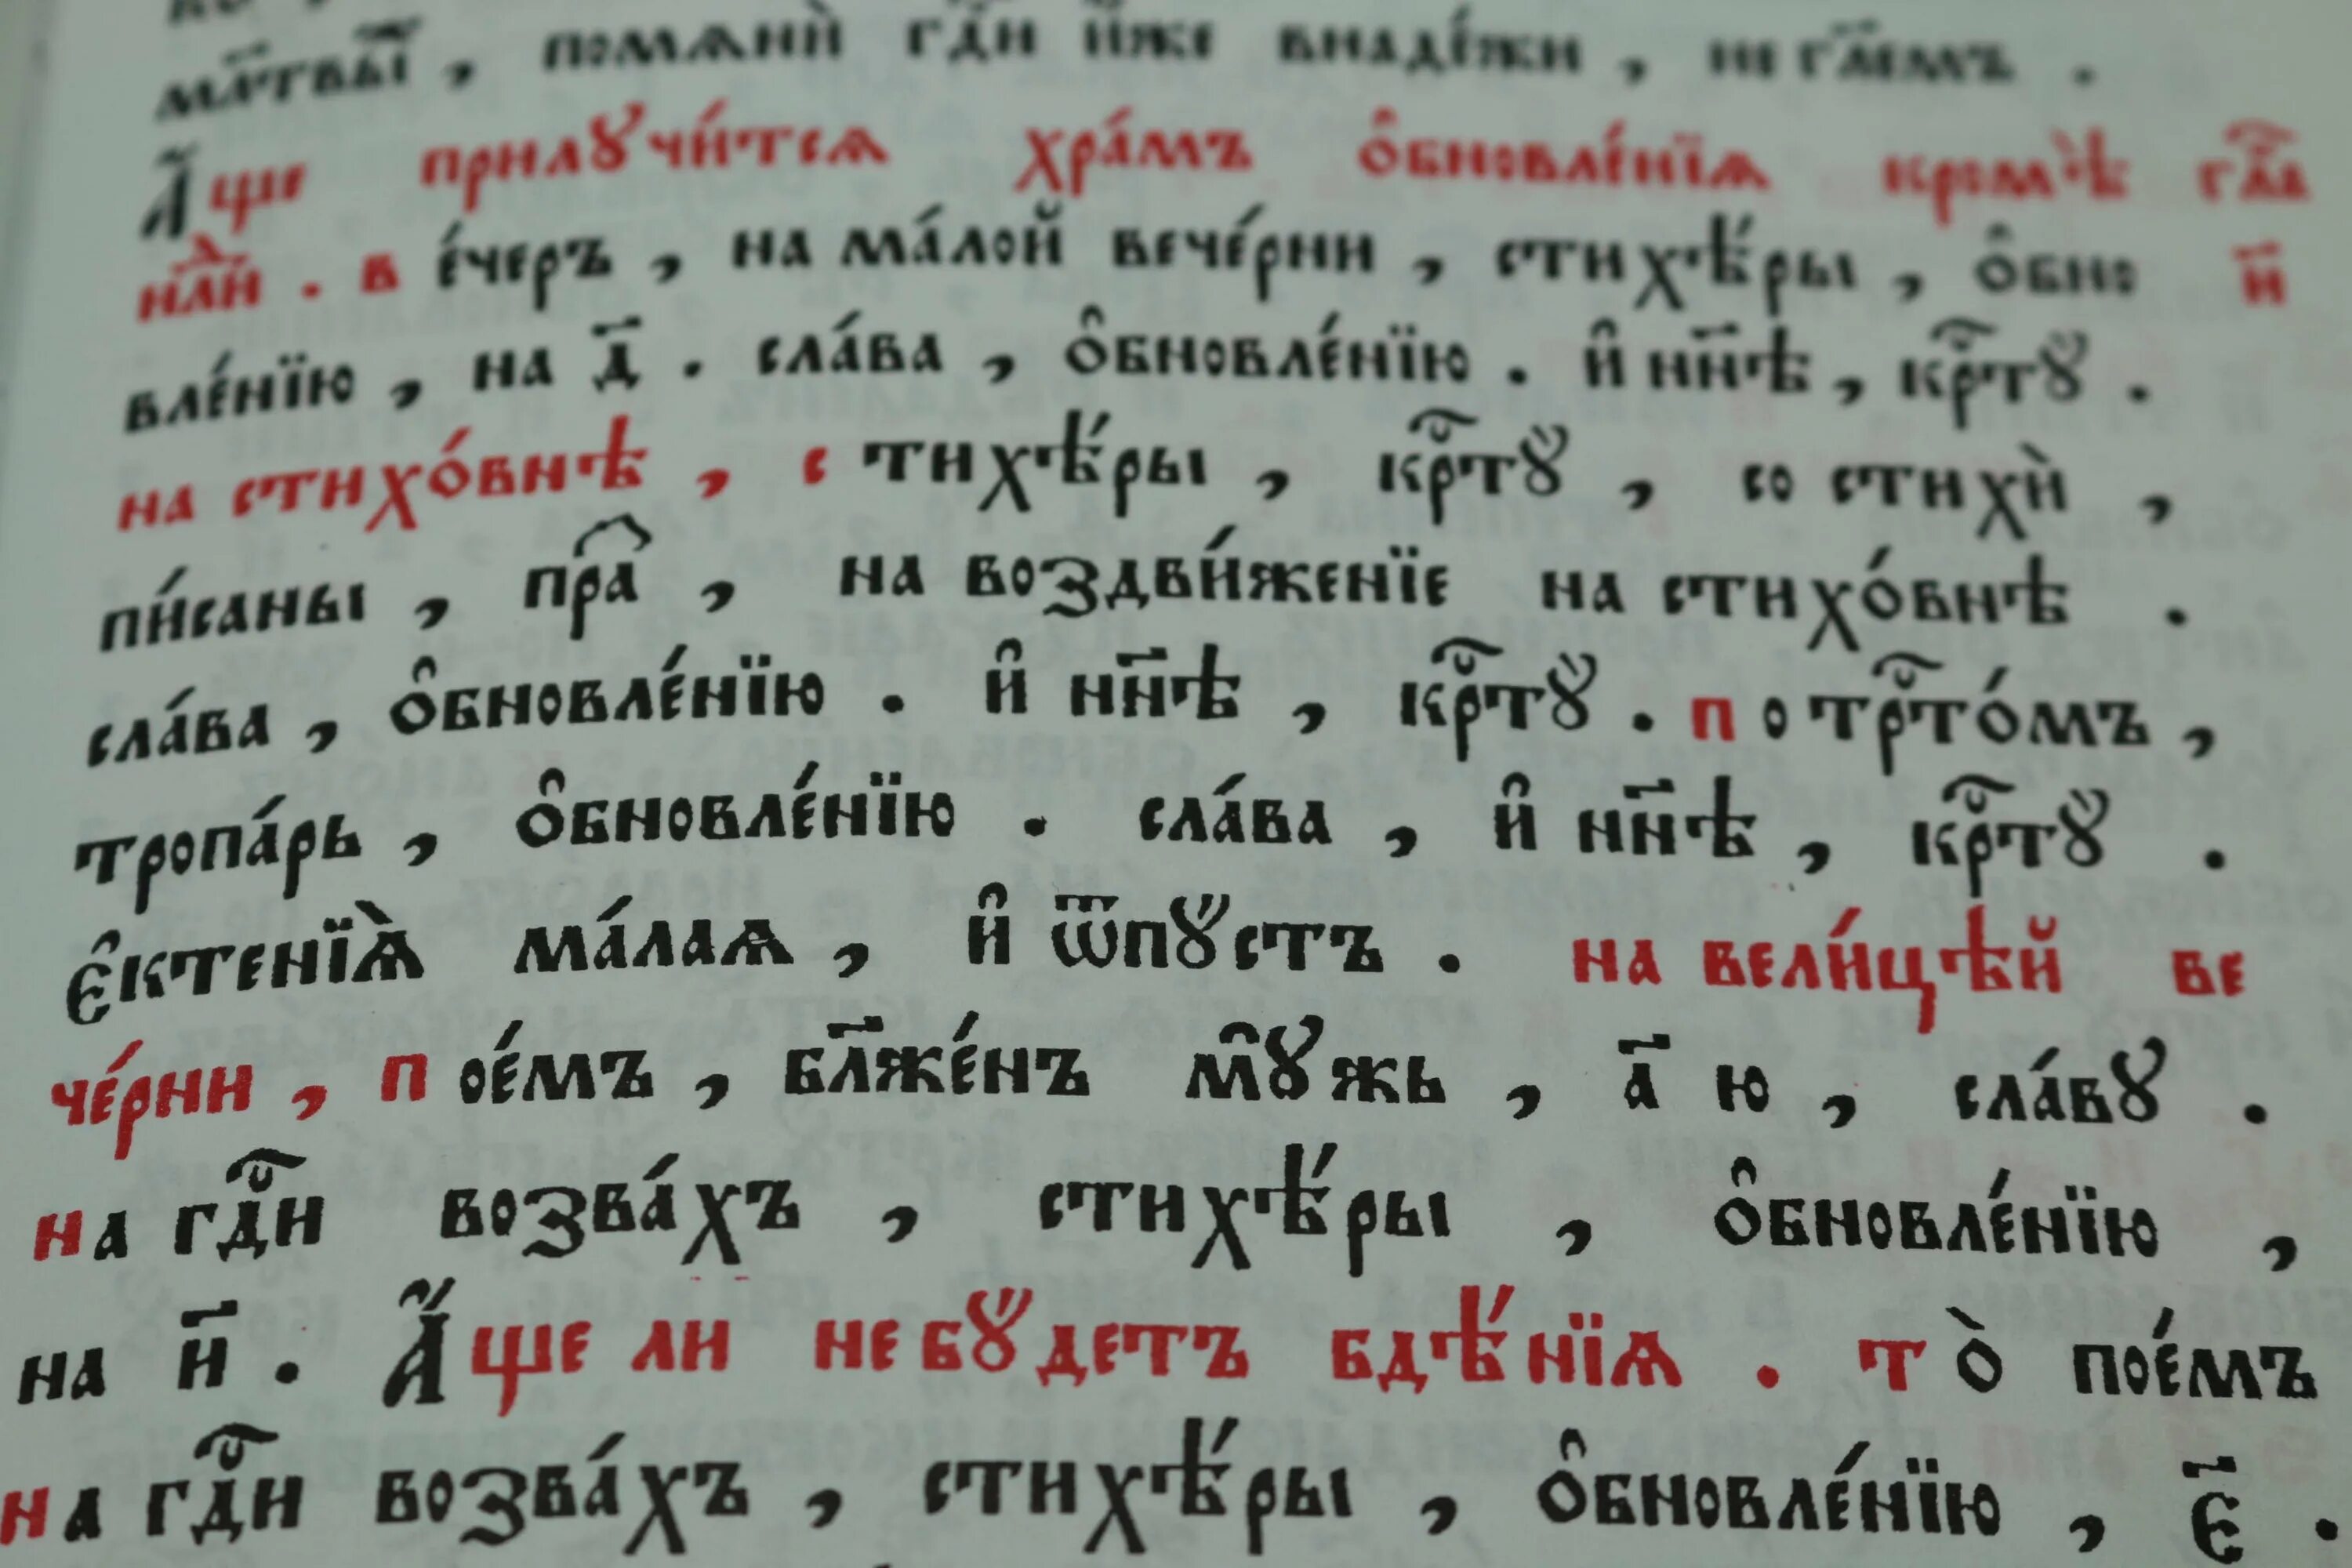 мл҃твы , помѧнѝ гд҇и и҆́же внаде́жи , не гл҃емъ .
А҆́ще прилꙋчи́тсѧ хра́мъ ѻ҆бновле́нїѧ кромѣ̀ гл҃а
нл҃и . в е́черъ , на ма́лой вече́рни , стихѣ́ры , ѻ҆бно и҃
вле́нїю , на д҃ . сла́ва , ѻ҆бновле́нїю . и҆ нн҃ѣ , крⷭ҇тꙋ̀ .
на стихо́внѣ , с тихѣ́ры , крⷭ҇тꙋ̀ , со стихѝ ,
пи́саны , пра҇ , на воздви́женїе на стихо́внѣ .
сла́ва , ѻ҆бновле́нїю . и҆ нн҃ѣ , крⷭ҇тꙋ̀ . п о трⷭ҇то́мъ ,
тропа́рь , ѻ҆бновле́нїю . сла́ва , и҆ нн҃ѣ , крⷭ҇тꙋ̀ .
є҆ктенїѧ̀ ма́лаѧ , и҆ ѿпꙋстъ . на вели́цѣй ве
че́рни , п ое́мъ , бл҃же́нъ мꙋ҆жь , а҃ ю , сла́вꙋ .
на гдⷭ҇и возва́хъ , стихѣ́ры , ѻ҆бновле́нїю ,
на и҃ . А҆́ще ли не бꙋ́детъ бдѣ́нїѧ . т о̀ пое́мъ
на гдⷭ҇и возва́хъ , стихѣ́ры , ѻ҆бновле́нїю , є҃ .